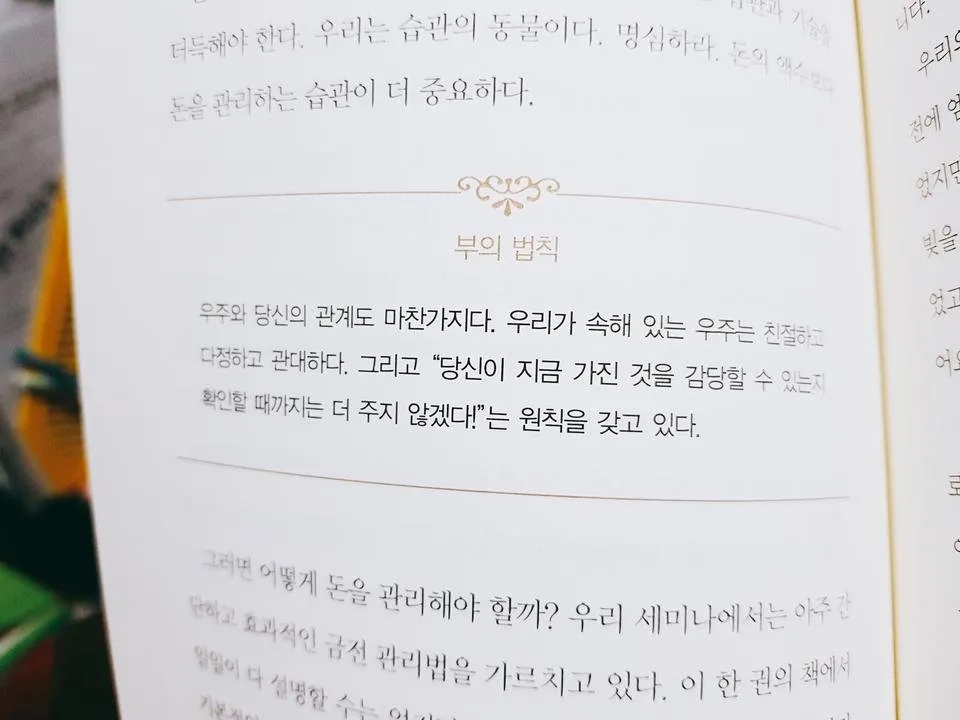 습관과 기술을
터득해야 한다. 우리는 습관의 동물이다. 명심하라. 돈의 액수보다
돈을 관리하는 습관이 더 중요하다.
부의 법칙
우주와 당신의 관계도 마찬가지다. 우리가 속해 있는 우주는 친절하고
다정하고 관대하다. 그리고 “당신이 지금 가진 것을 감당할 수 있는지
확인할 때까지는 더 주지 않겠다!”는 원칙을 갖고 있다.
그러면 어떻게 돈을 관리해야 할까? 우리 세미나에서는 아주 간
단하고 효과적인 금전 관리법을 가르치고 있다. 이 한 권의 책에서
일일이 다 설명할 수는
니다.
전에
었지만
빚을
었고